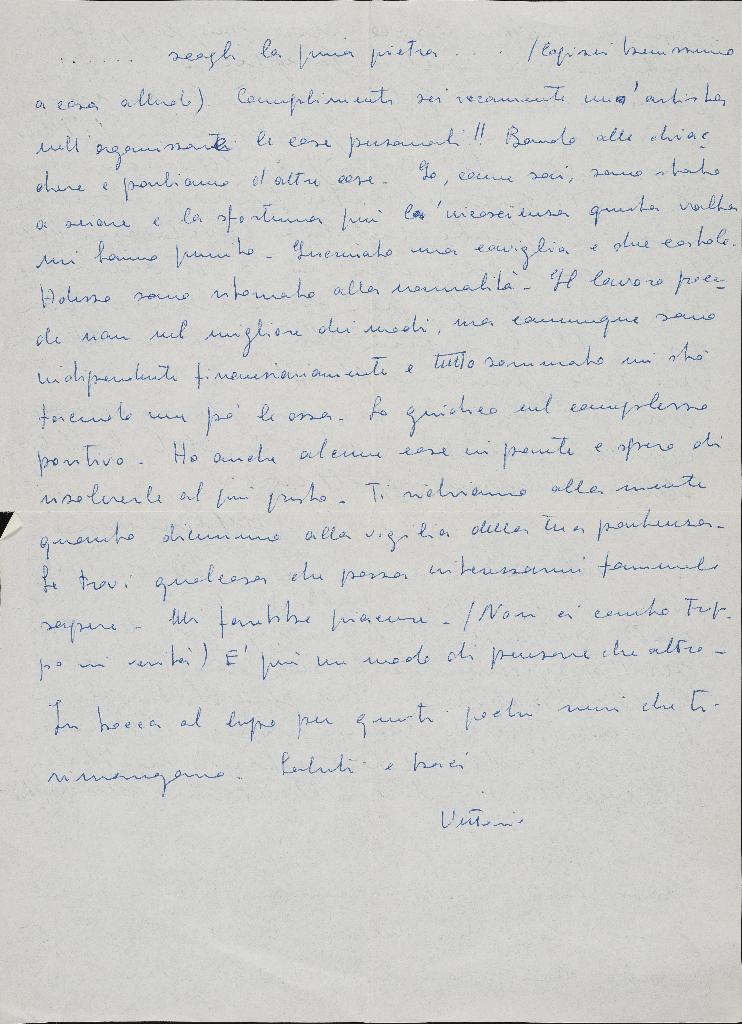 ....... scagli la prima pietra .... /Capisci benissimo
a cosa alludo). Complimenti sei veramente un'artista
nell'organizzarti le cose personali!! Bando alle chiac=
chere e parliamo d'altre cose. Io, come sai, sono stato
a sciare e la sfortuna più la incoscienza questa volta
mi hanno punito. Incrinato una caviglia e due costole.
Adesso sono ritornato alla normalità. Il lavoro proce=
de non nel migliore dei modi, ma comunque sono
indipendente finanziariamente e tutto sommato mi sto
facendo un po' le ossa. Lo giudico nel complesso
positivo. Ho anche alcune cose in ponte e spero di
risolverle al più presto. Ti richiamo alla mente
quanto dicemmo alla vigilia della tua partenza.
Se trovi qualcosa che possa interessarmi fammelo
sapere. Mi farebbe piacere. /Non ci conto trop-
po in verità) E' più un modo di pensare che altro.
In bocca al lupo per questi pochi mesi che ti
rimangono. Saluti e baci
Vittorio